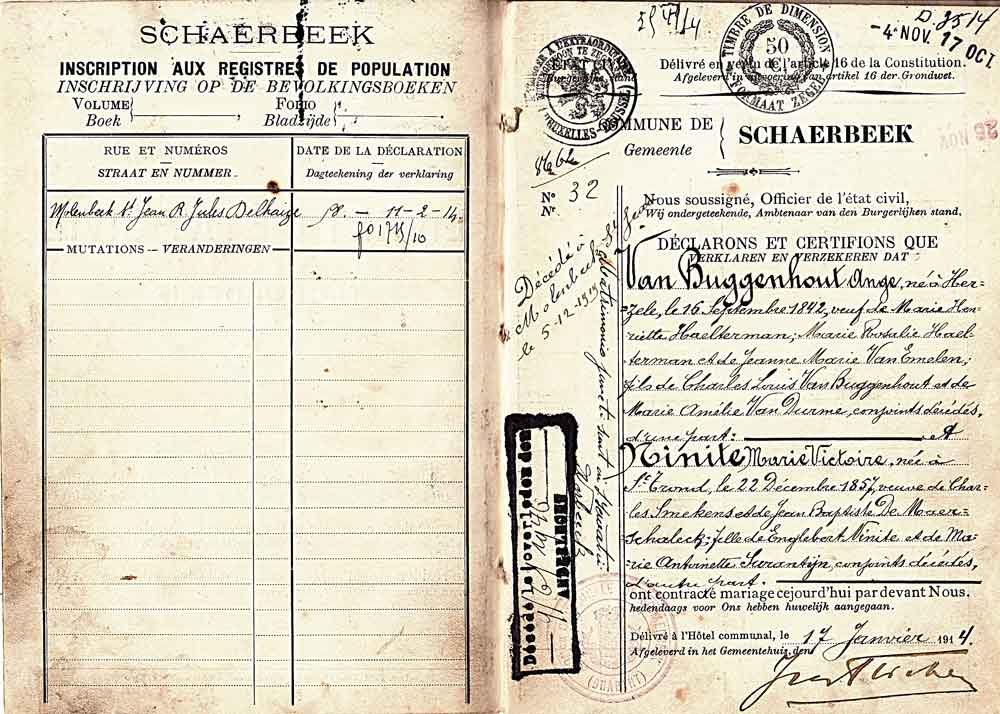 SCHAERBEEK
INSCRIPTION AUX REGISTRES DE POPULATION
INSCHRIJVING OP DE BEVOLKINGSBOEKEN
VOLUME FOLIO
Boek Bladzijde
RUE ET NUMÉROS DATE DE LA DÉCLARATION
STRAAT EN NUMMER. Dagteekening der verklaring
Molenbeek St Jean R. Jules Delhaize 11-2-14
MUTATIONS — VERANDERINGEN
4 NOV. 17 OCT
TIMBRE DE DIMENSION
50
FORMAAT ZEGEL
Délivré en vertu de l'article 16 de la Constitution.
Afgeleverd in uitvoering van artikel 16 der Grondwet.
COMMUNE DE SCHAERBEEK
Gemeente
Nº 32
Nr.
Nous soussigné, Officier de l'état civil,
Wij ondergeteekende, Ambtenaar van den Burgerlijken stand.
DÉCLARONS ET CERTIFIONS QUE
VERKLAREN EN VERZEKEREN DAT
Van Buggenhout Ange, né à Her-
zele, le 16 Septembre 1842, veuf de Marie Hen-
riette Haelterman; Marie Rosalie Hael-
terman et de Jeanne Marie Van Emelen;
fils de Charles Louis Van Buggenhout et de
Marie Amélie Van Durme, conjoints décédés,
d'une part: et
Ninite Marie Victoire, née à
St Trond, le 22 Décembre 1857, veuve de Char-
les Smekens et de Jean Baptiste De Maer-
schalck; fille de Englebert Ninite et de Ma-
rie Antoinette Surantijn, conjoints décédés,
d'autre part.
ont contracté mariage cejourd'hui par devant Nous.
hedendaags voor Ons hebben huwelijk aangegaan.
Délivré à l'Hôtel communal, le 17 Janvier 1914.
Afgeleverd in het Gemeentehuis, den
Décédé à
Molenbeek St Jean
le 5-12-1919
Décédé le/overleden den